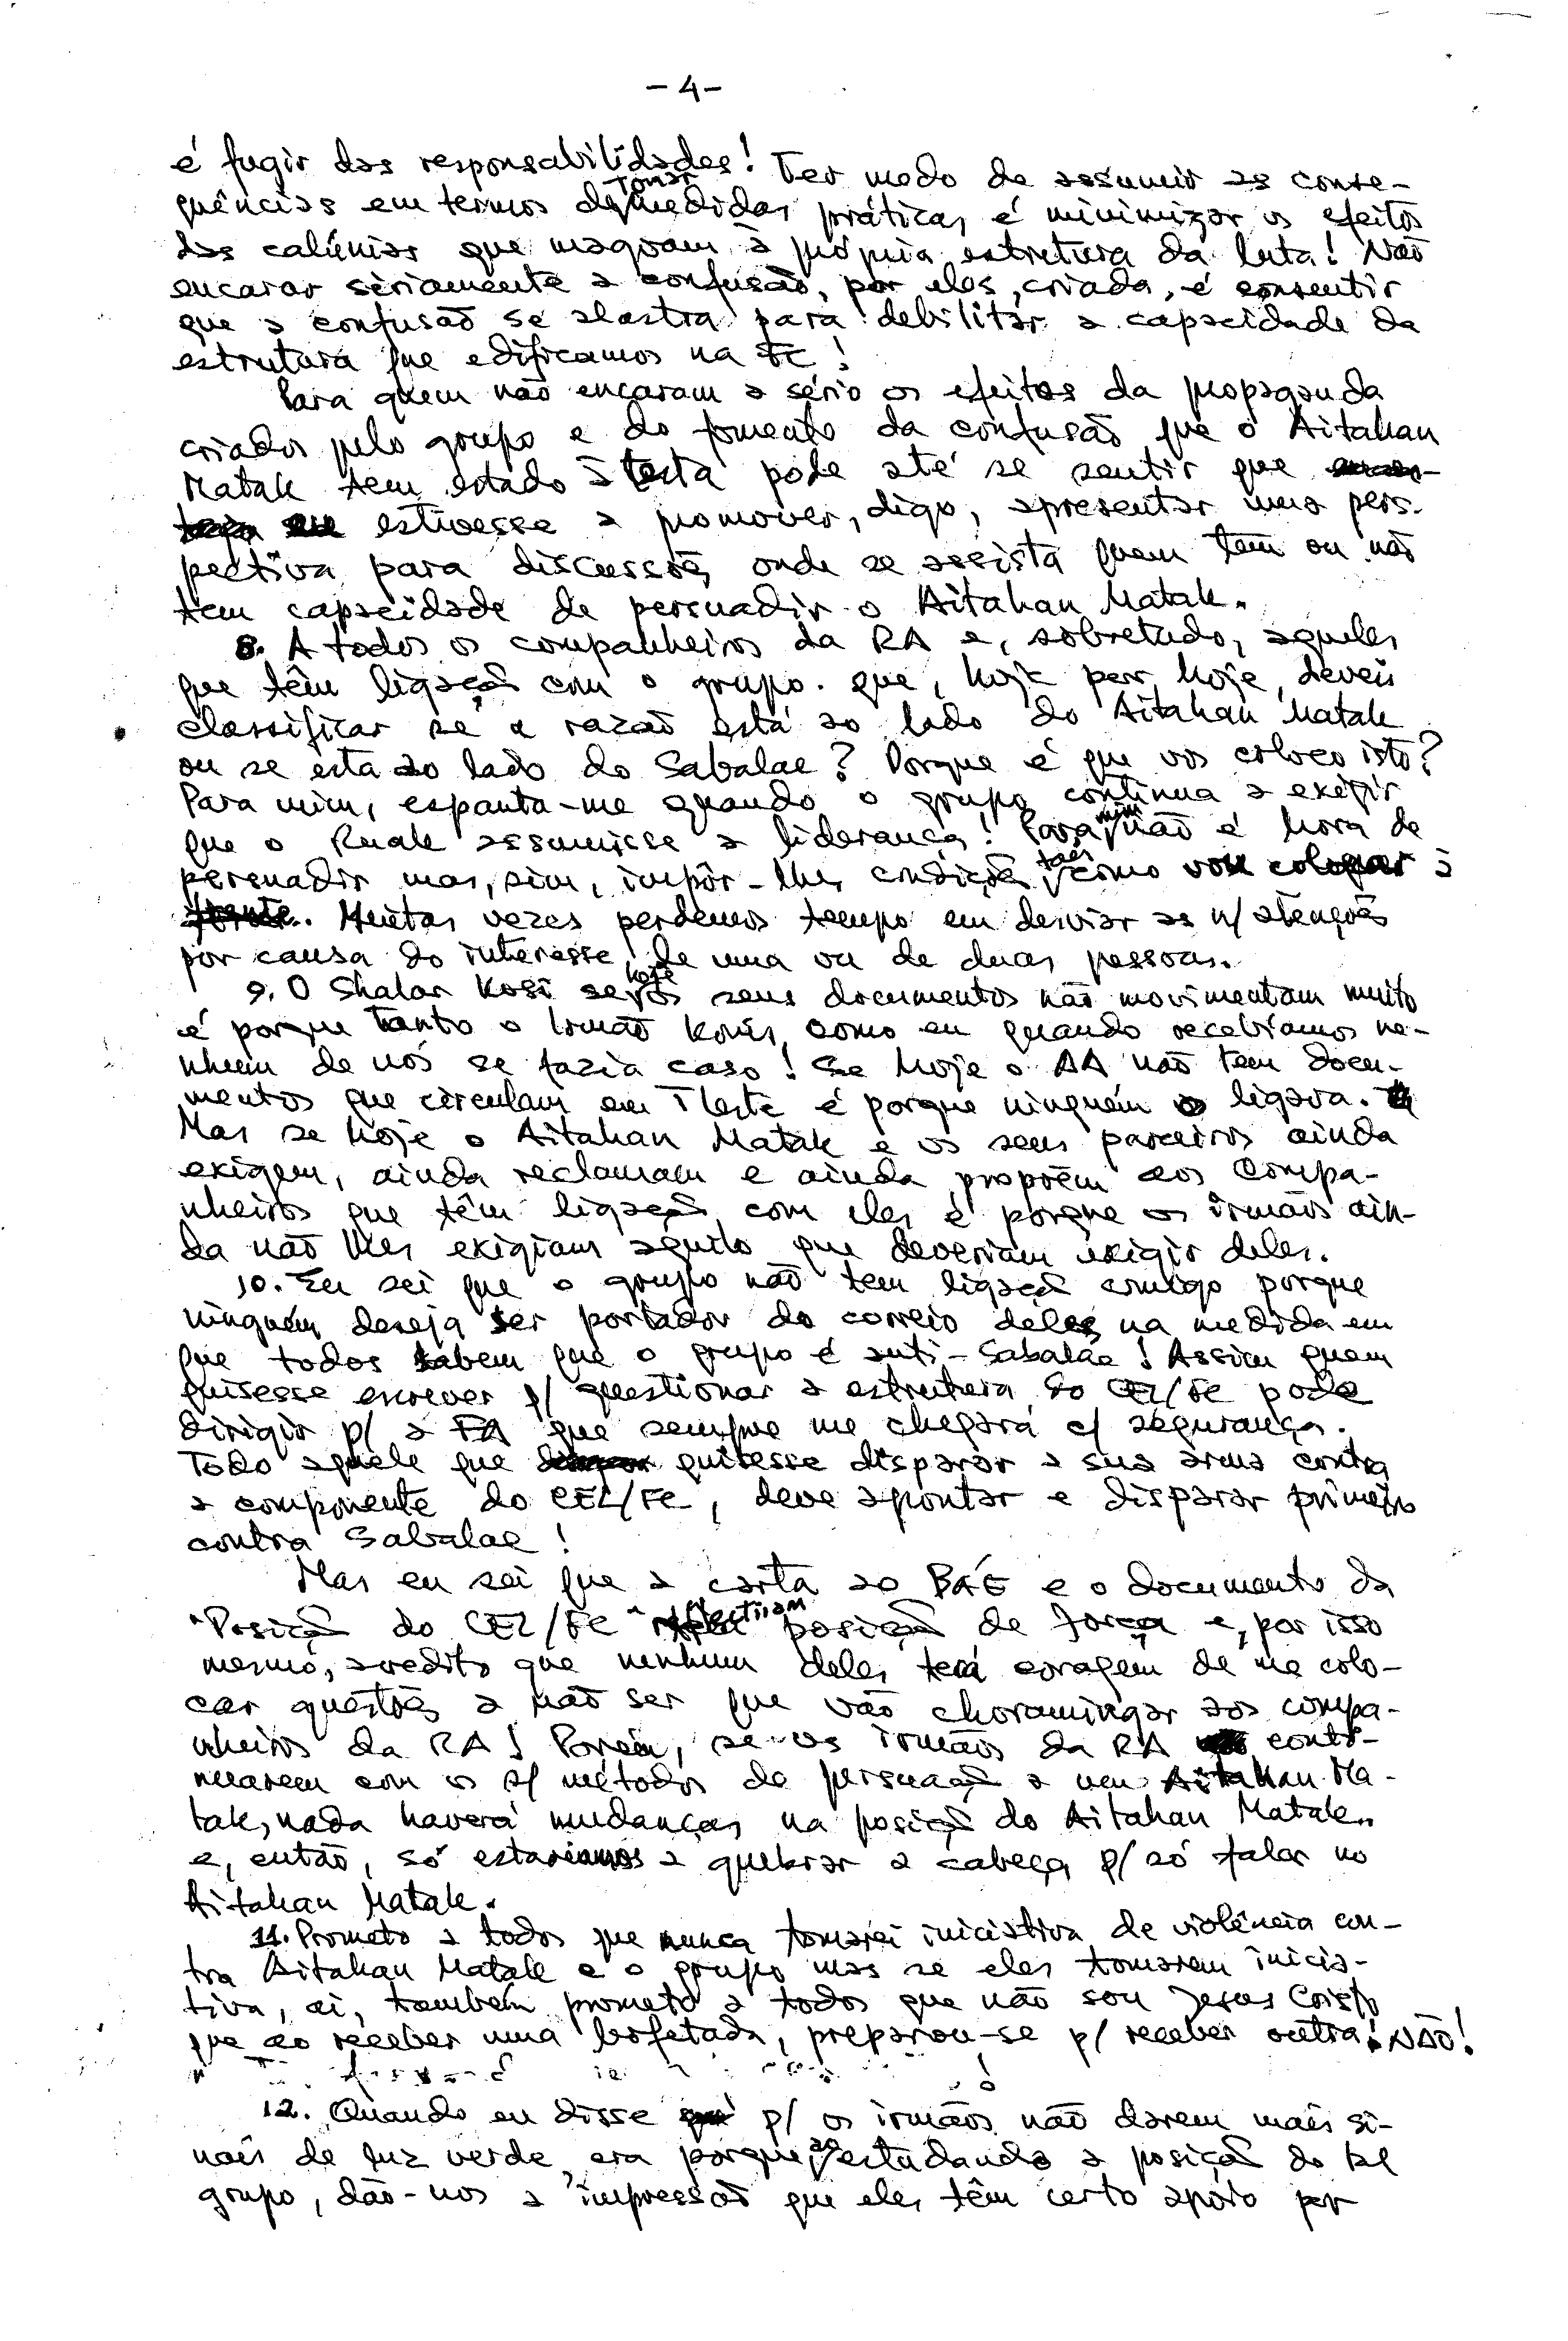 - 4 -
é fugir das responsabilidades! Ter medo de assumir as conse-
quências em termos de tomar medidas práticas é minimizar os efeitos
das calúnias que magoam à própria estrutura da luta! Não
encarar seriamente a confusão, por eles, criada, é consentir
que a confusão se alastra para debilitar a capacidade da
estrutura que edificamos na FC!
Para quem não encaram a sério os efeitos da propaganda
criados pelo grupo e do fomento da confusão que o Aitahan
Matak tem estado à testa pode até se sentir que
estivesse a promover, digo, apresentar uma pers-
pectiva para discussões onde se assista quem tem ou não
tem capacidade de persuadir o Aitahan Matak.
8. A todos os companheiros da RA e, sobretudo, aqueles
que têm ligação com o grupo. que, hoje por hoje, deveis
classificar se a razão está ao lado do Aitahan Matak
ou se está ao lado do Sabalae? Porque é que vos coloco isto?
Para mim, espanta-me quando o grupo continua a exigir
que o Ruak assumisse a liderança! Para mim não é hora de
persuadir mas, sim, impôr-lhes condições tais como vou colocar à
frente. Muitas vezes perdemos tempo em desviar as n/ atenções
por causa do interesse de uma ou de duas pessoas.
9. O Shalar Kosi se hoje os seus documentos não movimentam muito
é porque tanto o Irmão Konis, como eu quando recebíamos ne-
nhum de nós se fazia caso! Se hoje o AA não tem docu-
mentos que circulam em TLeste é porque ninguém o ligava.
Mas se hoje o Aitahan Matak e os seus parceiros ainda
exigem, ainda reclamam e ainda propõem aos compa-
nheiros que têm ligação com eles é porque os irmãos ain-
da não lhes exigiam aquilo que deveriam exigir deles.
10. Eu sei que o grupo não tem ligação comigo porque
ninguém deseja ser portador do correio deles na medida em
que todos sabem que o grupo é anti-Sabalae! Assim quem
quisesse escrever p/ questionar a estrutura do CEL/FC pode
dirigir p/ a FA que sempre me chegará c/ segurança.
Todo aquele que quisesse disparar a sua arma contra
a componente do CEL/FC, deve apontar e disparar primeiro
contra Sabalae!
Mas eu sei que a carta ao BAE e o documento da
"Posição do CEL/FC" reflectiram posição de força e, por isso
mesmo, acredito que nenhum deles terá coragem de me colo-
car questões a não ser que vão choramingar aos compa-
nheiros da RA! Porém, se os irmãos da RA conti-
nuarem com os s/ métodos de persuação a um Aitahan Ma-
tak, nada haverá mudanças na posição do Aitahan Matak..
e, então, só estaríamos a quebrar a cabeça p/ só falar no
Aitahan Matak.
11. Prometo a todos que nunca tomarei iniciativa de violência con-
tra Aitahan Matak e o grupo mas se eles tomarem inicia-
tiva, aí, também prometo a todos que não sou Jesus Cristo
que ao receber uma bofetada, preparou-se p/ receber outra! NÃO!
12. Quando eu disse p/ os irmãos não darem mais si-
nais de luz verde, era porque, ao estudando a posição do tal
grupo, dão-nos a impressão que eles têm certo apoio por